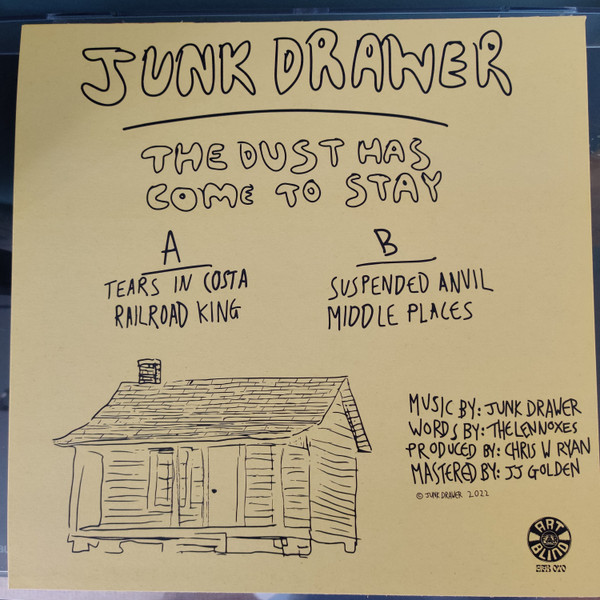 JUNK DRAWER
THE DUST HAS
COME TO STAY
A
TEARS IN COSTA
RAILROAD KING
B
SUSPENDED ANVIL
MIDDLE PLACES
MUSIC BY: JUNK DRAWER
WORDS BY: THE LENNOXES
PRODUCED BY: CHRIS W RYAN
MASTERED BY: JJ GOLDEN
© JUNK DRAWER 2022
ART
BLIND